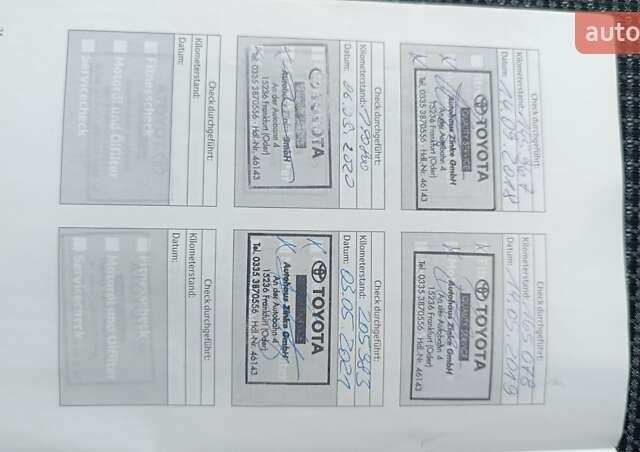 auto
Check durchgeführt:
Kilometerstand:
Datum: 14.05.2018
TOYOTA
Autohaus Zinke GmbH
An der Autobahn 4
15236 Frankfurt (Oder)
Tel. 0335 3870556 Hdl.-Nr. 46143
Check durchgeführt:
Kilometerstand: 165 078
Datum: 14.05.2019
TOYOTA
Autohaus Zinke GmbH
An der Autobahn 4
15236 Frankfurt (Oder)
Tel. 0335 3870556 Hdl.-Nr. 46143
Check durchgeführt:
Kilometerstand:
Datum: 2020
TOYOTA
Autohaus Zinke GmbH
An der Autobahn 4
15236 Frankfurt (Oder)
Tel. 0335 3870556 Hdl.-Nr. 46143
Check durchgeführt:
Kilometerstand: 205 383
Datum: 03.05.2021
TOYOTA
Autohaus Zinke GmbH
An der Autobahn 4
15236 Frankfurt (Oder)
Tel. 0335 3870556 Hdl.-Nr. 46143
Check durchgeführt:
Kilometerstand:
Datum:
Fitnesscheck
Motoröl und Ölfilter
Servicecheck
Check durchgeführt:
Kilometerstand:
Datum: